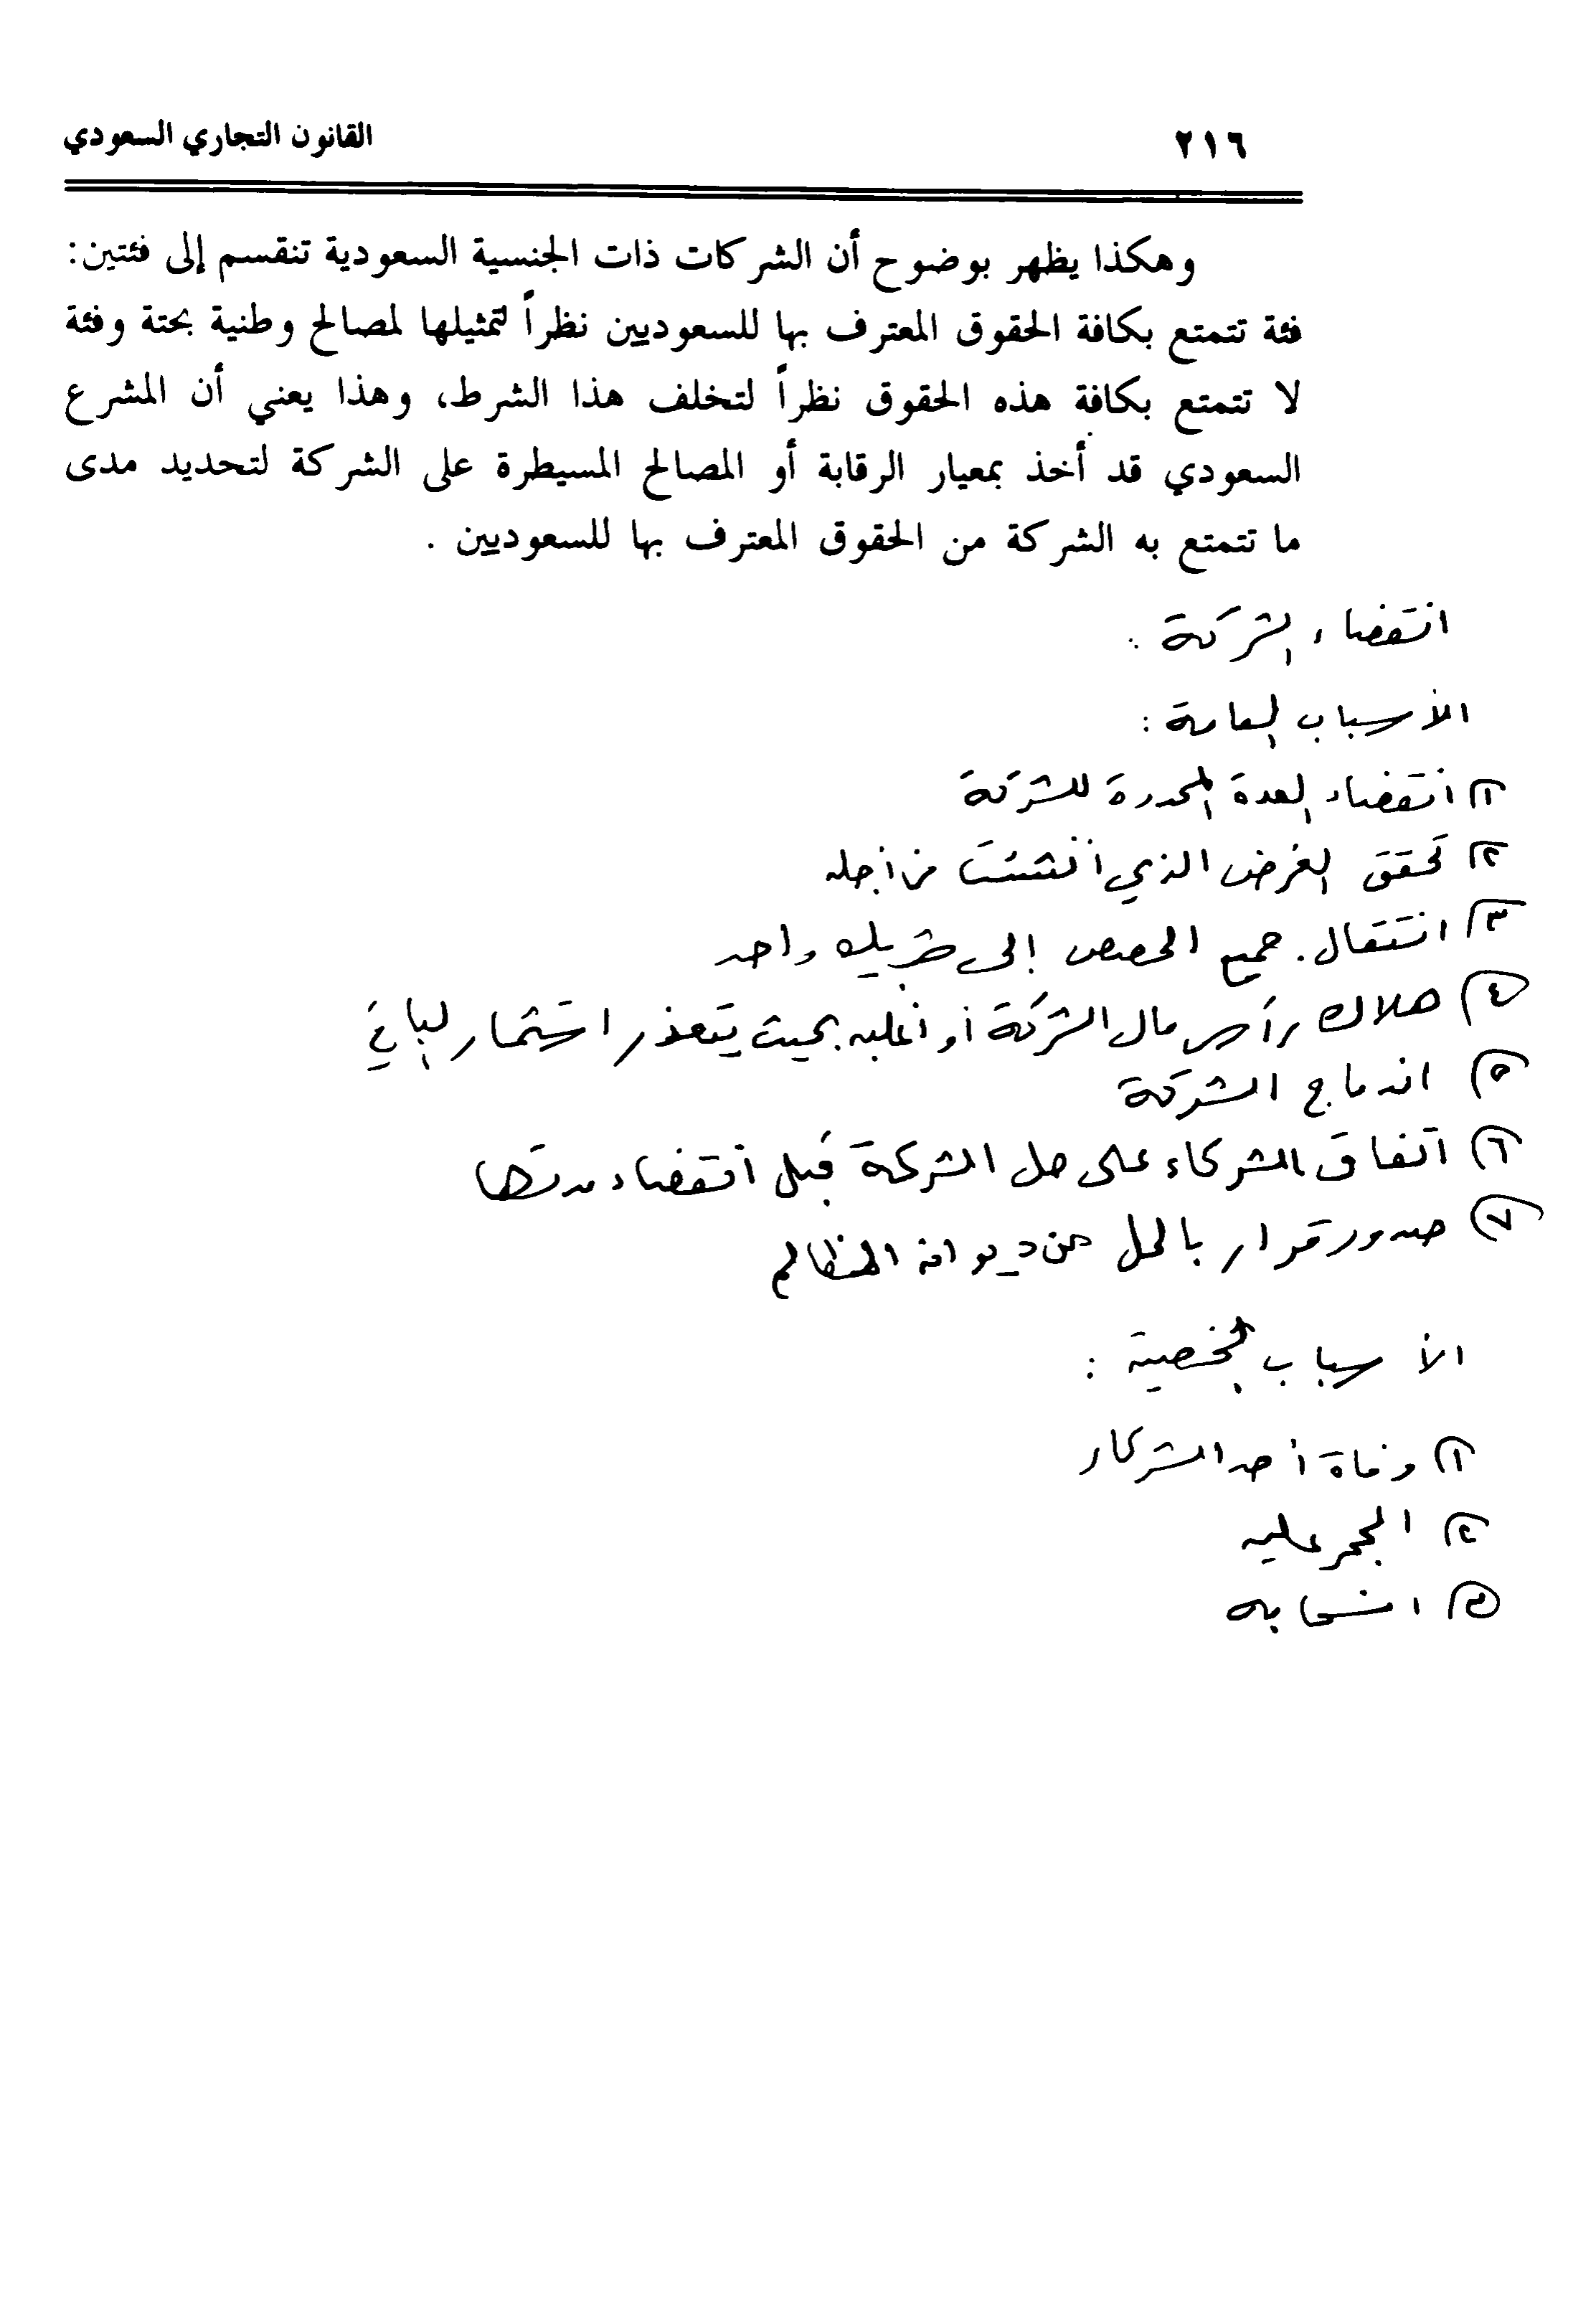 ٢١٦
القانون التجاري السعودي
وهكذا يظهر بوضوح أن الشركات ذات الجنسية السعودية تنقسم إلى فئتين:
فئة تتمتع بكافة الحقوق المعترف بها للسعوديين نظراً لتمثيلها لمصالح وطنية بحتة وفئة
لا تتمتع بكافة هذه الحقوق نظراً لتخلف هذا الشرط، وهذا يعني أن المشرع
السعودي قد أخذ بمعيار الرقابة أو المصالح المسيطرة على الشركة لتحديد مدى
ما تتمتع به الشركة من الحقوق المعترف بها للسعوديين .
انقضاء الشركة :
الأسباب العامة :
١) انقضاء المدة المحددة للشركة
٢) تحقق الغرض الذي انشئت من اجله
٣) انتقال جميع الحصص إلى شريك واحد
٤) هلاك رأس مال الشركة أو أغلبه بحيث يتعذر استثمار الباقي
٥) اندماج الشركة
٦) اتفاق الشركاء على حل الشركة قبل انقضاء مدتها
٧) صدور قرار بالحل من ديوان المظالم
الأسباب الشخصية :
١) وفاة أحد الشركاء
٢) الحجر عليه
٣) انسحابه